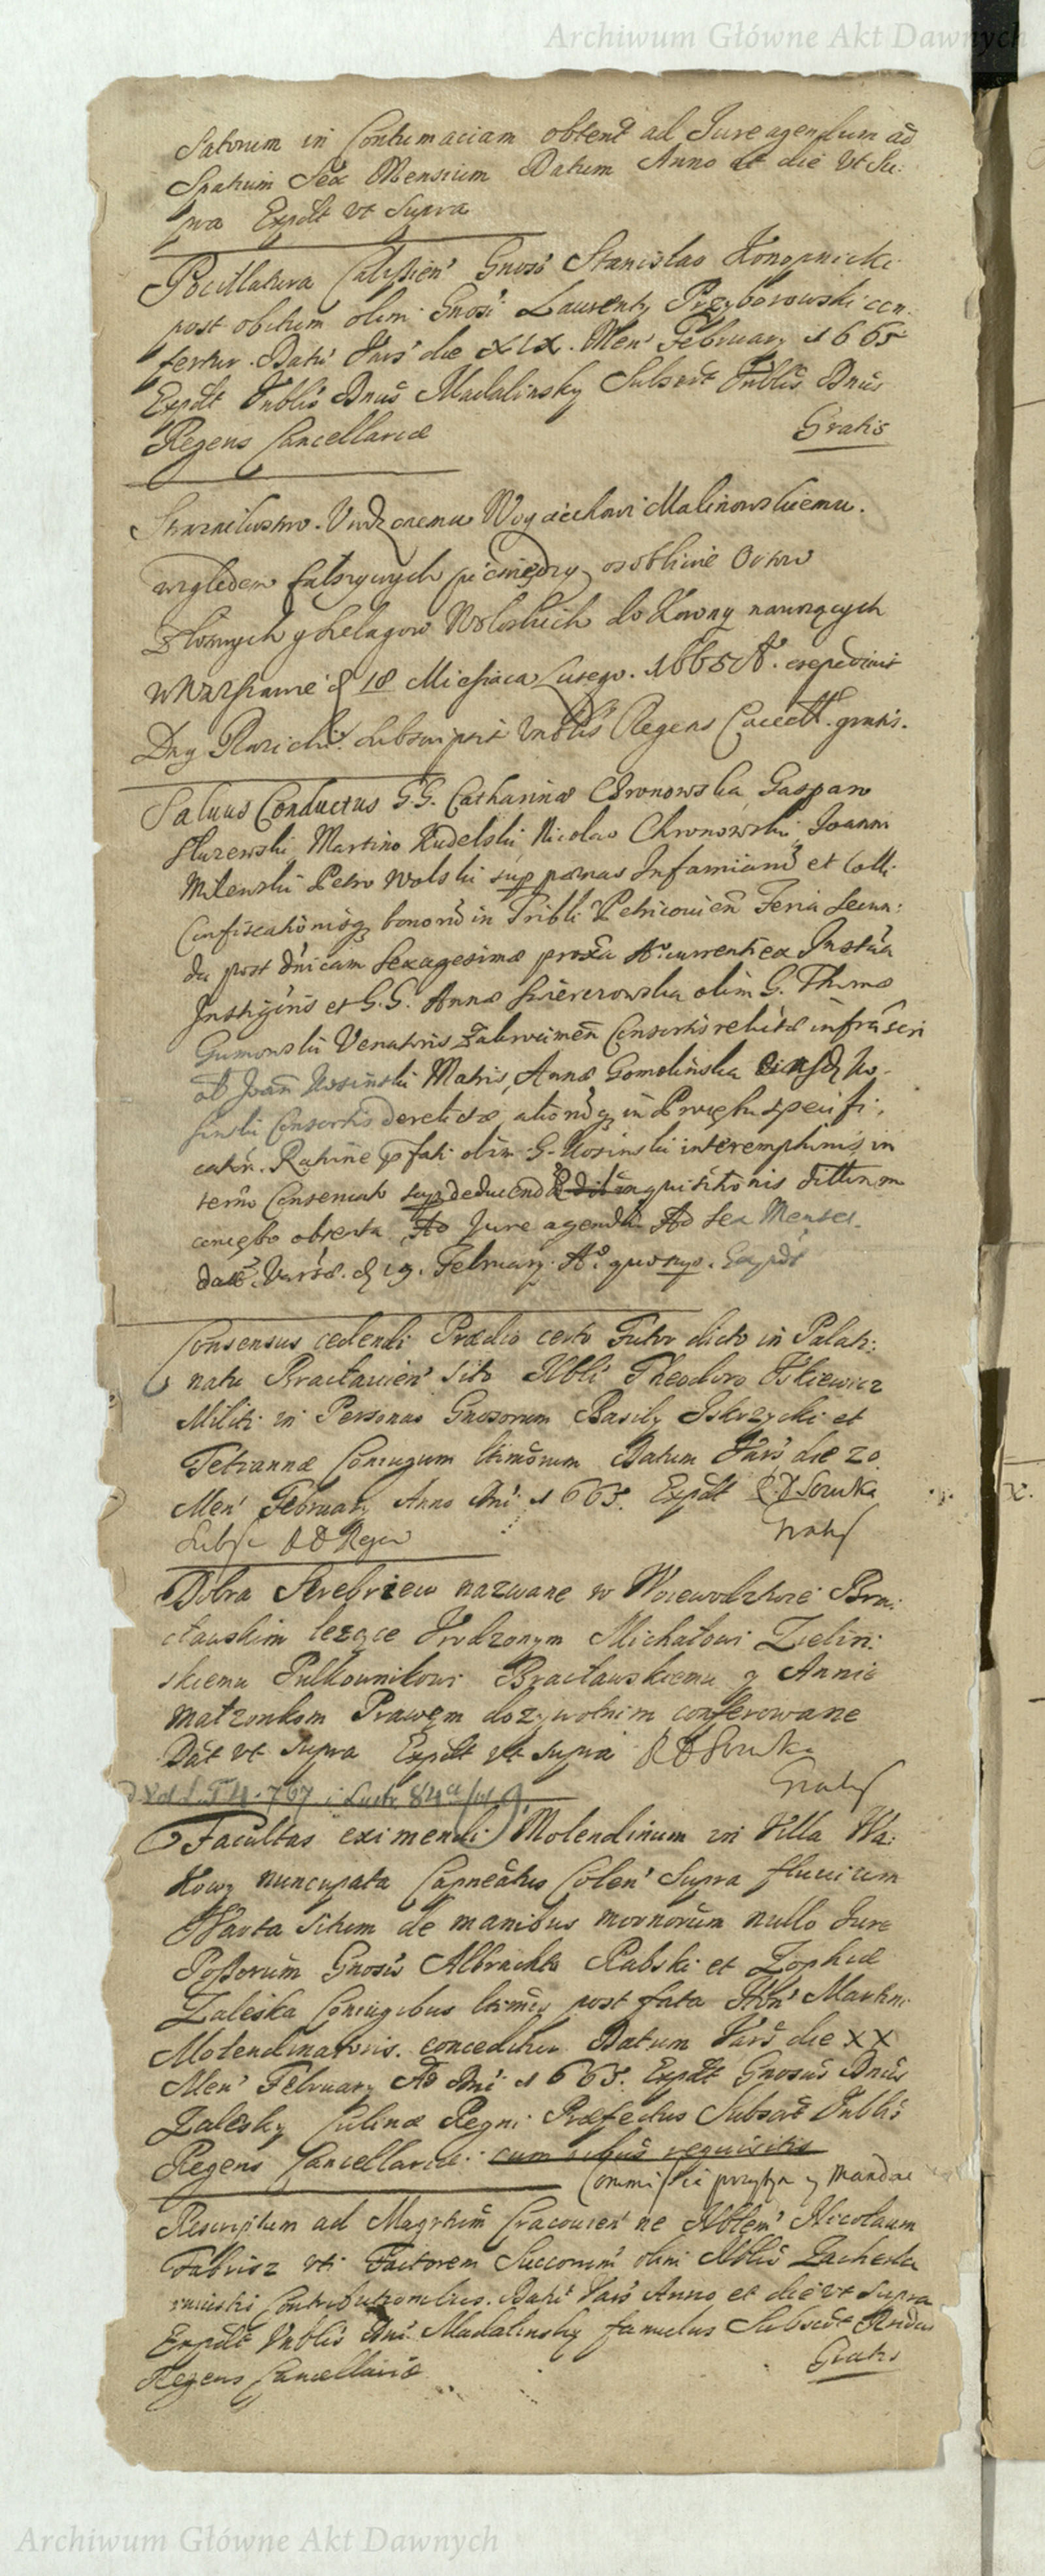 Archiwum Główne Akt Dawnych
Satorum in Contumaciam obtent ad Jure agendum ad
Spatium Sex Mensium Datum Anno et die Vt Su:
pra Expdt vt Supra
Pocillatura Calissien Gnoso Stanislao Konopnicki
post obitum olim Gnosi Laurenty Przyborowski con
fertur. Dat Vars die XIX. Men February 1665
Expdt Vrblis Dnus Madalinsky Subscrt Vrblis Dnus
Regens Cancellariæ Gratis
Vrodzonemu Woyciechowi Malinowskiemu.
względem fałszywych pieniędzy osobliwie Ortow
y szelagow Wołoskich do Korony
w Warszawie d 18 Miesiaca Lutego. 1665 A. expedivit
Dny subscripsit Vrblis Regens Cancell. gratis.
Saluus Conductus G.G. Catharinæ Chronowska Gasparo
Sluzewski, Martino Rudelski, Nicolao Chronowski, Joanni
Milewski Petro Wolski sup pænas Infamiam et Colli
Confiscationisq bonoru in Tribli Petricouien Feria Secun:
da post dnicam Sexagesimæ proxa Ao currenti ex Insta
Instigtris et G.G. Annæ olim G. Thomæ
Gumowski Venatoris Zakroimen Consortis relictæ infrascri
ac Joan Kosinski Matris, Annæ Gomolinska eiusd Ko-
sinski Consortis derelictæ, in specifi,
cator. Ratione pfati olim G. Kosinski interemptionis in
termo Conseruato sup deducend inquisitionis
obtenta Ad Jure agendu Ad Sex Menses.
dat. Varsæ. d 19. February. Ao quo sup. Expdt
Consensus cedendi Prædio certo Futor dicto in Palati:
natu Bracłauien sito Nbli Theodoro Itkiewicz
Militi in Personas Gnosorum Basily Iskrzycki et
Tetiannæ Coniugum ltimorum Datum Vars die 20
Men February Anno Dni 1665. Expdt R.D Souka
Subsc R D Regen Gratis
Dobra Serebriew nazwane w Woiewodztwie Bra:
cławskim leżące Vrodzonym Michałowi Zielin:
skiemu Pułkownikowi Bracławskiemu y Annie
małzonkom Prawem dożywotnim conferowane
Dat vt supra Expdt vt supra R D Souka
Gratis
Facultas eximendi Molendinum in Villa Wa:
kowy nuncupata Capneatus Colen Supra fluuium
Warta situm de manibus mornorum nullo Jure
Possorum Gnosis Albrachto Rabski et Zophiæ
Zaleska Coniugibus ltimis post fata Hon Martini
Molendinatoris. conceditur Datum Vars die XX
Men February Ao Dni 1665. Expdt Gnosus Dnus
Zalesky Culinæ Regni Præfectus Subscrt Vrblis
Regens Cancellariæ. cum requisitis
Commissie y Mandae
Rescriptum ad Magrtum Cracouien ne Nblem Nicolaum
Fabrisz vti Factorem Succorum olim Nblis
contributionibus. Dat Vars Anno et die vt supra
Expdt Vrblis Dni Madalinsky famulus Subscrt Rndus
Regens Cancellariæ Gratis
Archiwum Główne Akt Dawnych